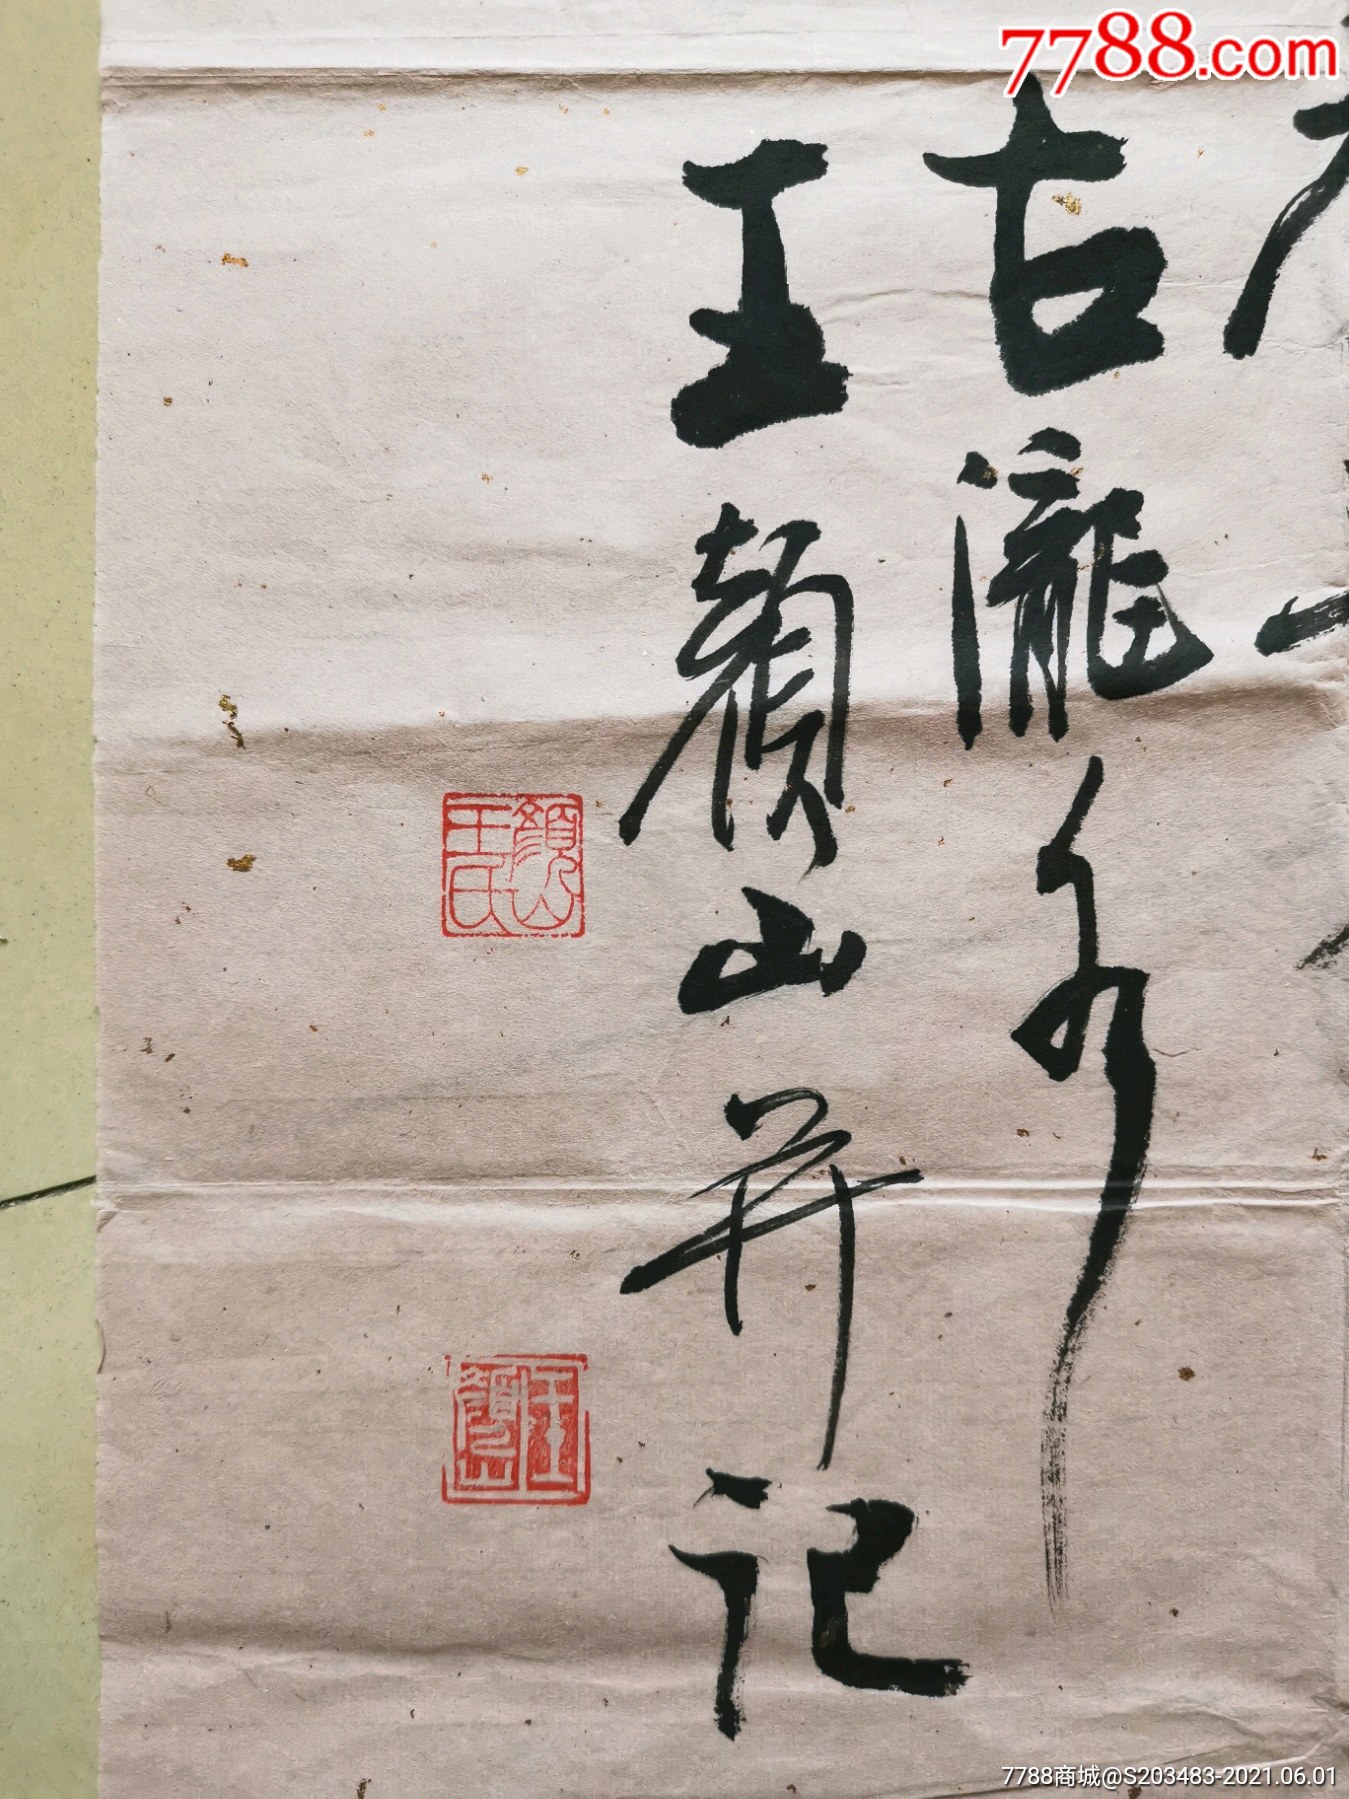 7788.com
古
王顏山并记
顏山王氏
王顏山
7788商城@S203483-2021.06.01